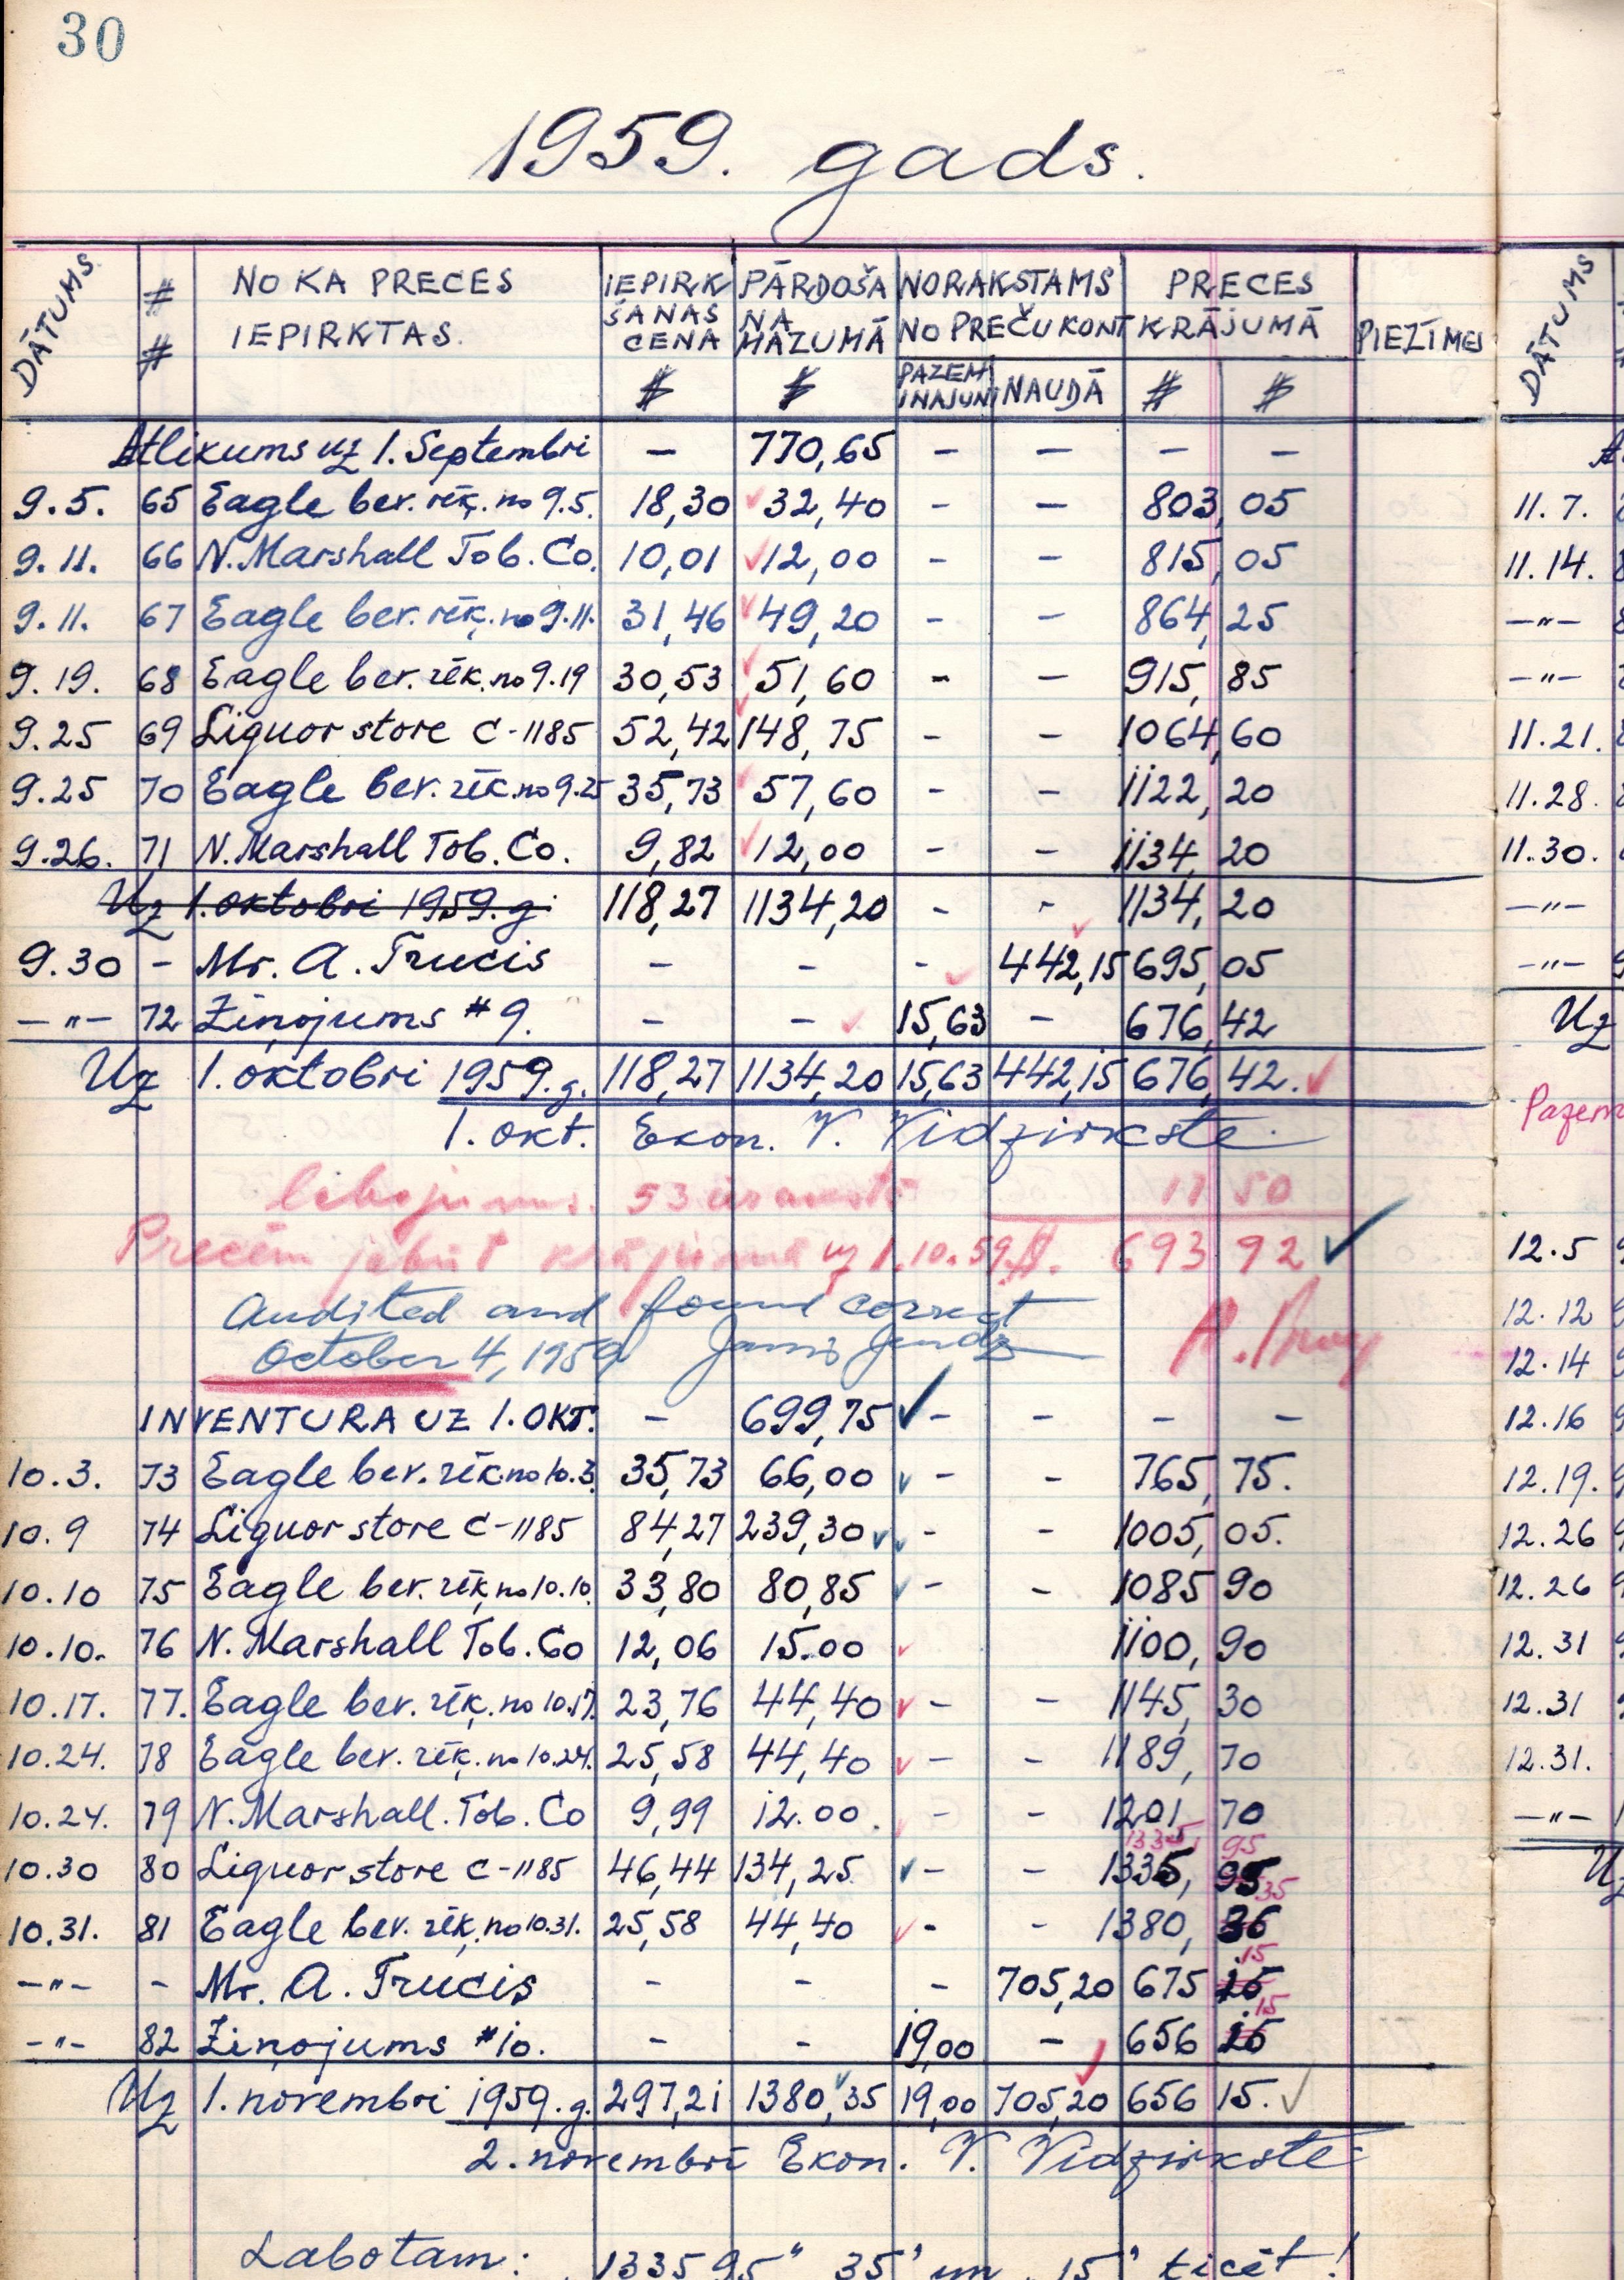 30
1959. gads.
DĀTUMS # # NO KA PRECES IEPIRKTAS. IEPIRKŠANAS CENA $ PĀRDOŠANA MAZUMĀ $ NORAKSTAMS NO PREČU KONT PAZEMINAJUM NAUDĀ PRECES KRĀJUMĀ # $ PIEZĪMES DĀTUMS
Atlikums uz 1. Septembri — 770,65 — — — —
9.5. 65 Eagle bev. rēķ. no 9.5. 18,30 32,40 — — 803,05 11.7.
9.11. 66 N. Marshall Tob. Co. 10,01 12,00 — — 815,05 11.14.
9.11. 67 Eagle bev. rēķ. no 9.11. 31,46 49,20 — — 864,25 —"—
9.19. 68 Eagle bev. rēķ. no 9.19 30,53 51,60 - — 915,85 —"—
9.25 69 Liguor store C-1185 52,42 148,75 - - 1064,60 11.21.
9.25 70 Eagle bev. rēķ. no 9.25 35,73 57,60 - - 1122,20 11.28.
9.26. 71 N. Marshall Tob. Co. 9,82 12,00 - - 1134,20 11.30.
Uz 1. oktobri 1959. g. 118,27 1134,20 - - 1134,20 —"—
9.30 - Mr. A. Trucis — - - 442,15 695,05 —"—
—"— 72 Ziņojums #9. — — 15,63 — 676,42 Uz
Uz 1. oktobri 1959. g. 118,27 1134,20 15,63 442,15 676,42.
1. okt. Ekon. V. Vidzirkste
Pazem
17 50
Precēm jābūt krājumā uz 1.10.59. $. 693 92 12.5
Audited and found correct 12.12
October 4, 1959 12.14
INVENTURA UZ 1. OKT. — 699,75 - - — — 12.16
10.3. 73 Eagle bev. rēķ. no 10.3. 35,73 66,00 - - 765,75. 12.19.
10.9 74 Liguor store C-1185 84,27 239,30 - - 1005,05. 12.26
10.10 75 Eagle bev. rēķ. no 10.10. 33,80 80,85 - - 1085 90 12.26
10.10. 76 N. Marshall Tob. Co 12,06 15.00 1100,90 12.31
10.17. 77. Eagle bev. rēķ. no 10.17. 23,76 44,40 - - 1145,30 12.31
10.24. 78 Eagle bev. rēķ. no 10.24. 25,58 44,40 - - 1189,70 12.31.
10.24. 79 N. Marshall. Tob. Co 9,99 12.00. - - 1201,70 —"—
1335, 95
10.30 80 Liguor store C-1185 46,44 134,25 - - 1335,95 Uz
35
10.31. 81 Eagle bev. rēķ. no 10.31. 25,58 44,40 - - 1380,35
15
—"— - Mr. A. Trucis - - - 705,20 675 15
15
—"— 82 Ziņojums #10. - - 19,00 — 656 15
Uz 1. novembri 1959. g. 297,21 1380,35 19,00 705,20 656 15.
2. novembri Ekon. V. Vidzirkste
Labotam: „1335 95" „35" un „15" ticēt!